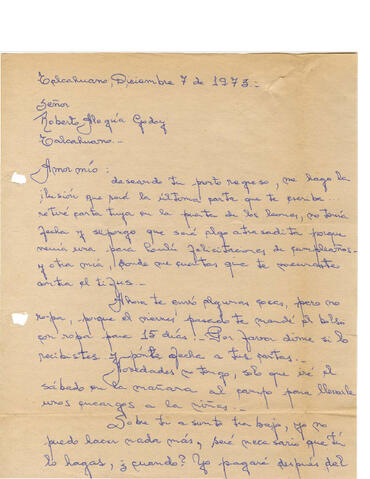 Talcahuano, Diciembre 7 de 1973.-
Señor
Roberto Alegría Godoy
Talcahuano.-
Amor mío:
deseando tu pronto regreso, me hago la
ilusión que será la última carta que te escribo...
retiré carta tuya en la puerta de los leones, no tenía
fecha y supongo que será algo atrasadita porque
venía una para felicitaciones de cumpleaños
y otra mía, donde me cuentas que te vacunaste
contra el tifus.-
Ahora te envió algunas cosas, pero no
ropa, porque el viernes pasado te mandé el bolso
con ropa para 15 días! Por favor dime si lo
recibistes y ponle fecha a tus cartas.-
Novedades no tengo, solo que iré el
sábado en la mañana al campo para llevarle
unos encargos a la niña.-
Sobre tu asunto trabajo, yo no
puedo hacer nada más, será necesario que tú
lo hagas, ¿cuando? Yo pagaré después del